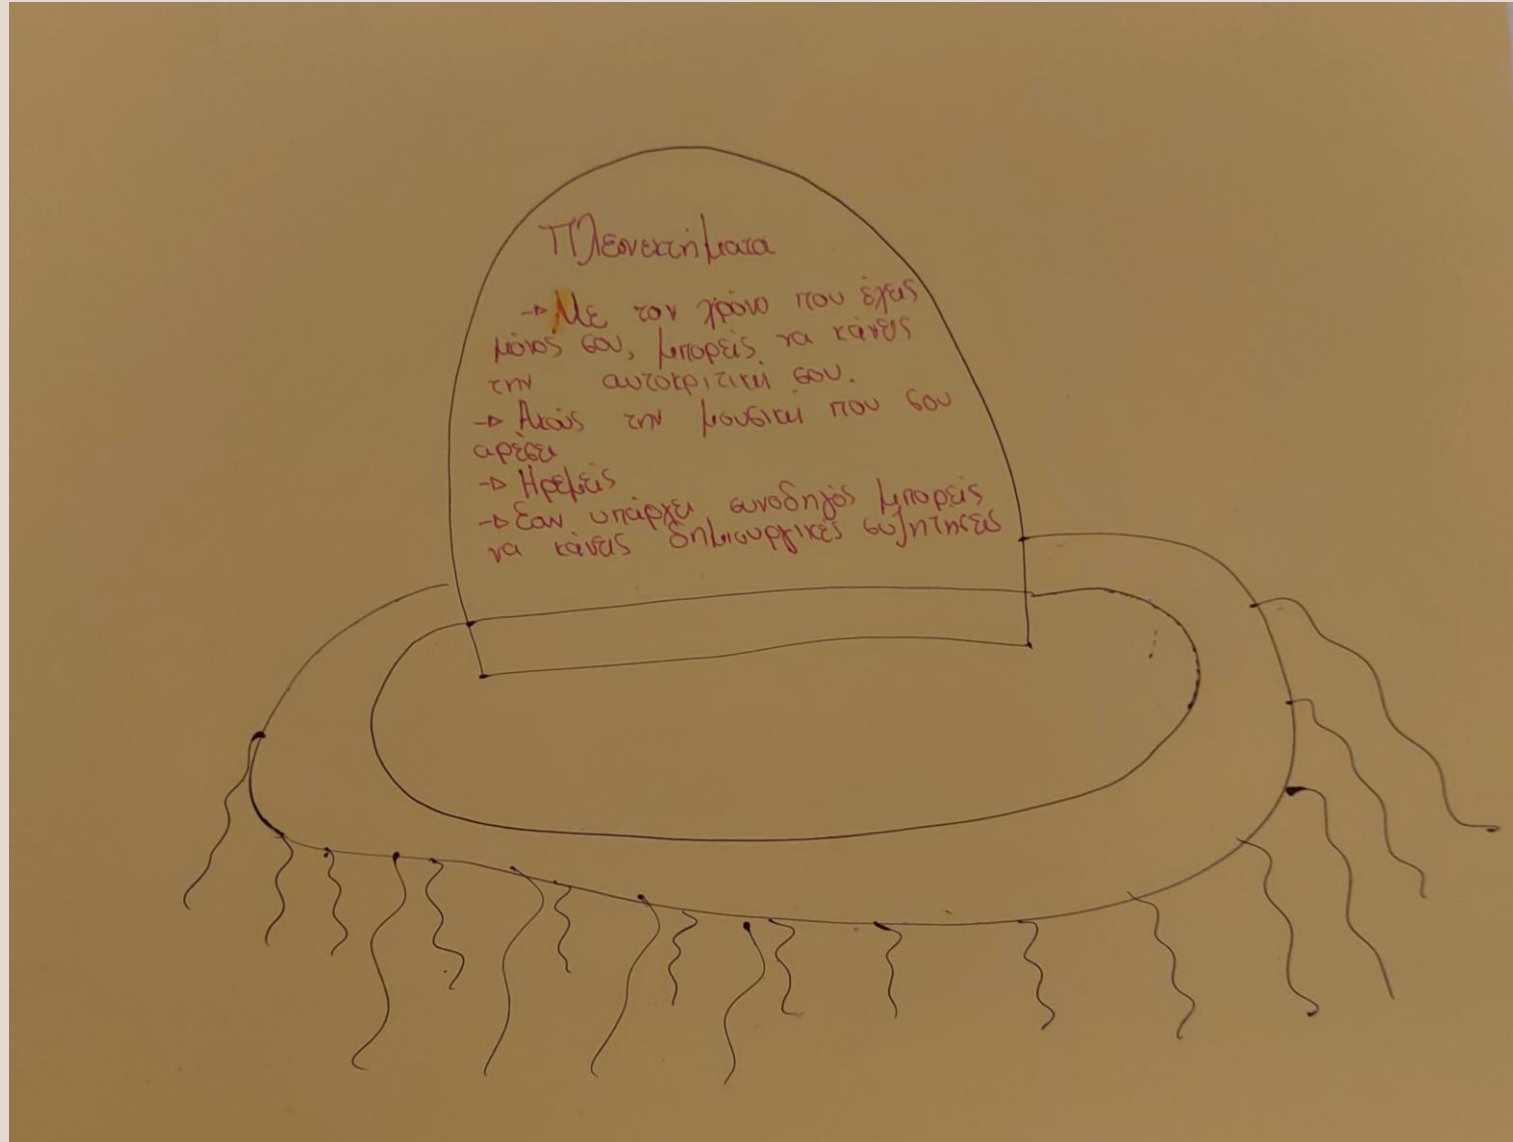 Πλεονεκτήματα
→ Με τον χρόνο που έχεις
μόνος σου, μπορείς να κάνεις
την αυτοκριτική σου.
→ Ακούς την μουσική που σου
αρέσει
→ Ηρεμείς
→ Εαν υπάρχει συνοδηγός μπορείς
να κάνεις δημιουργικές συζητήσεις